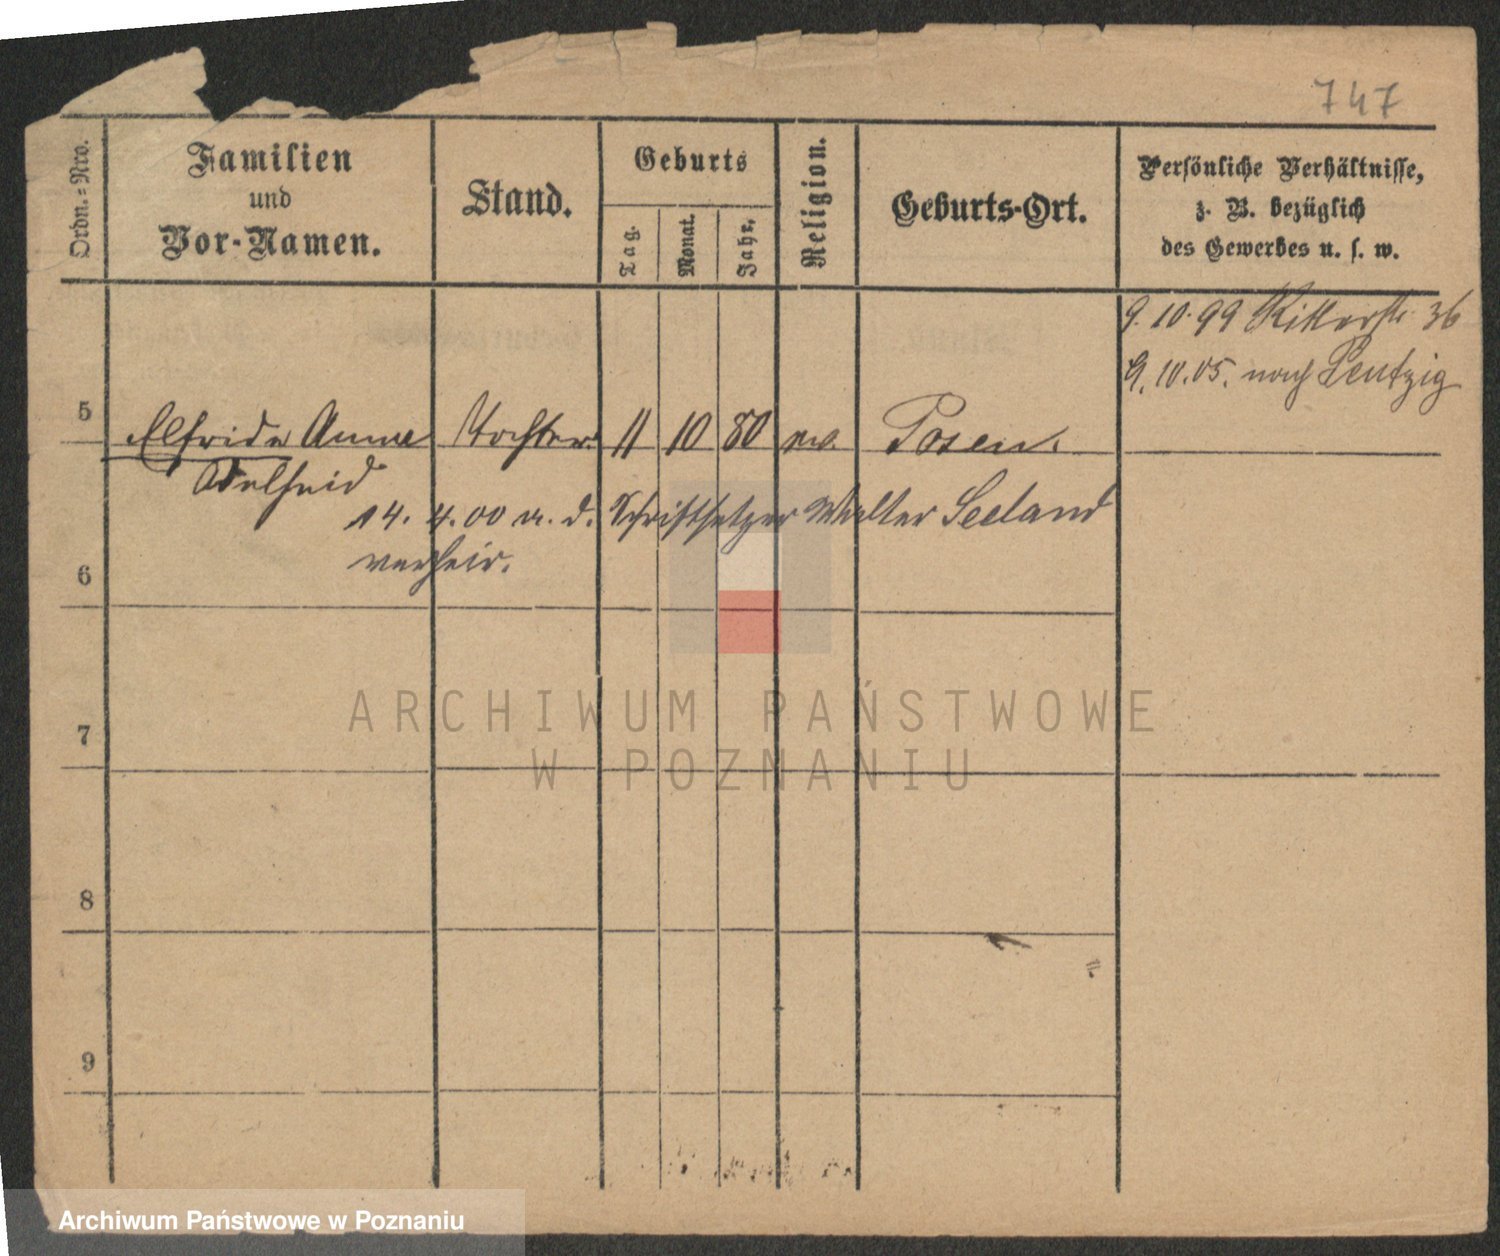 747
Ordn.-Nro.
Familien
und
Vor-Namen.
Stand.
Geburts
Tag.
Monat.
Jahr.
Religion.
Geburts-Ort.
Persönliche Verhältnisse,
z. B. bezüglich
des Gewerbes u. s. w.
9.10.99 Ritterstr. 36
9.10.05. nach Pentzig
5 Elfride Anna Tochter 11 10 80 ev. Posen.
Adelheid
14. 4.00 a. d. Schriftsetzer Walter Seeland
verheir.
6
7
8
9
ARCHIWUM PAŃSTWOWE
W POZNANIU
Archiwum Państwowe w Poznaniu